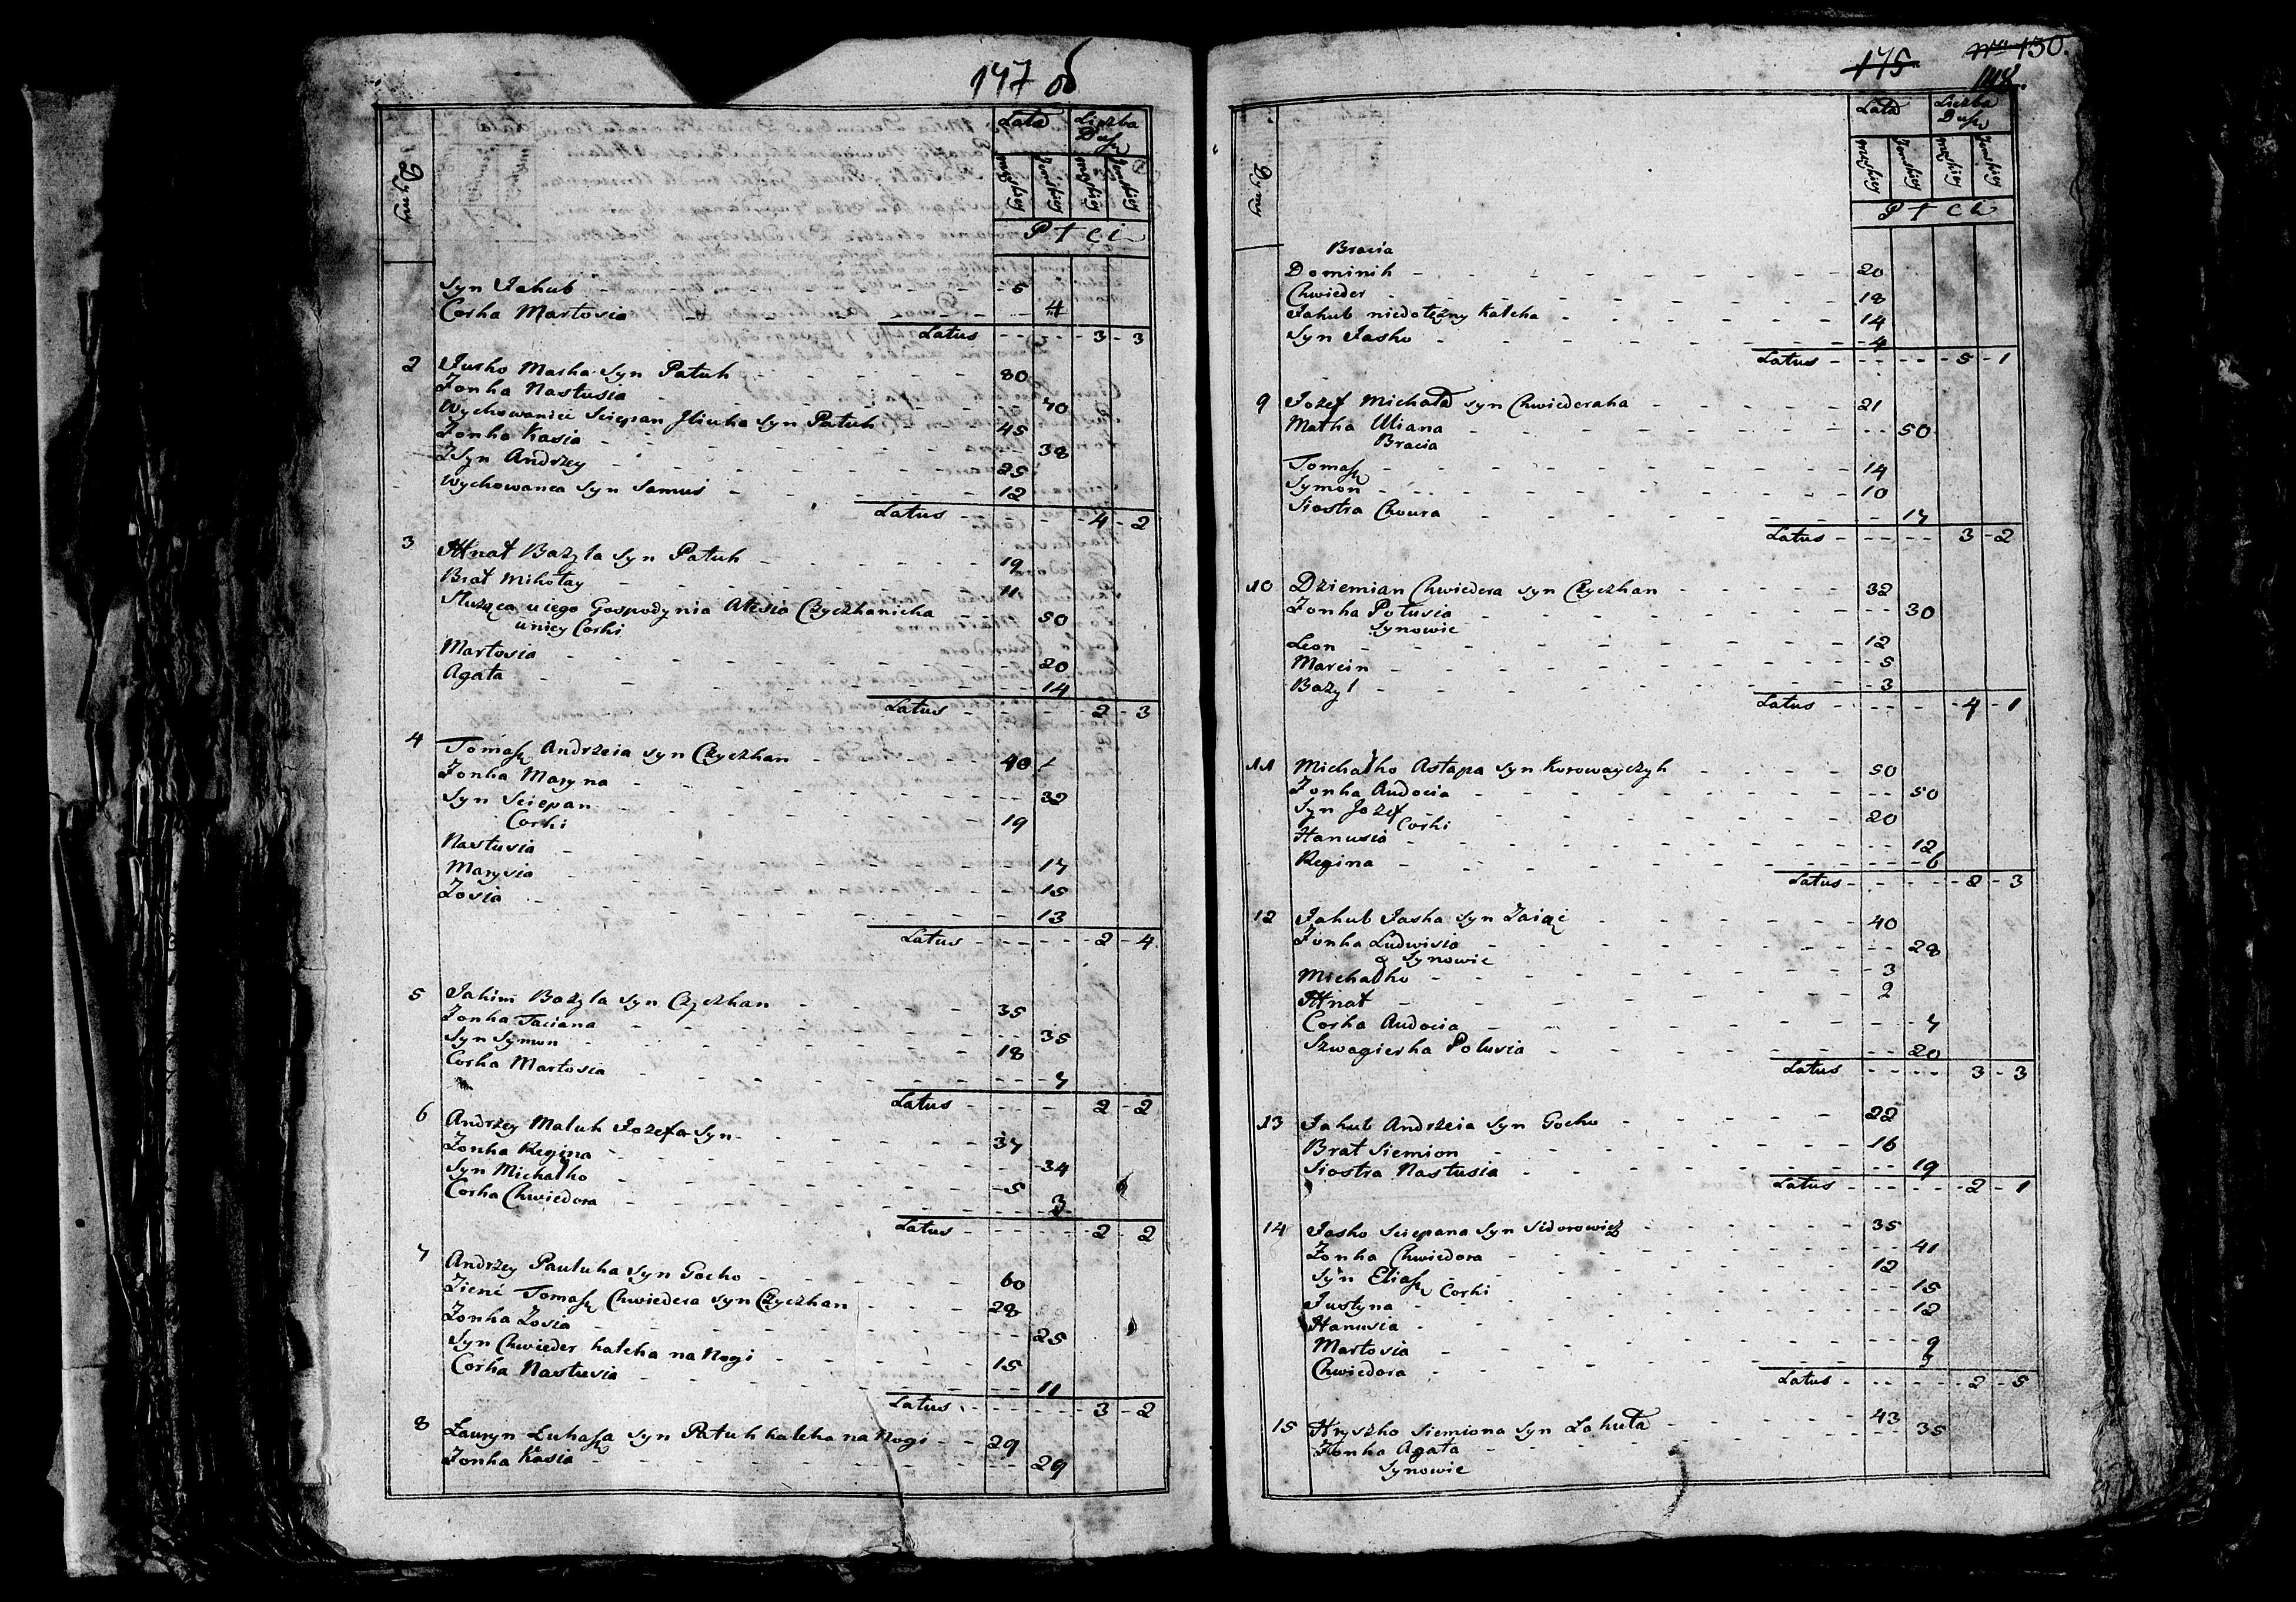 147 об
Dymy
Lata
Liczba Dusz
męskiey
żeńskiey
męskiey
żeńskiey
P ł c i
Syn Jakub - 5
Corka Martosia - 4
Latus - 3 - 3
2 Jurko Maska Syn Patuk - 80
Zonka Nastusia - 70
Wychowaniec Sciepan Jliuka Syn Patuk - 45
Zonka Kasia - 38
Syn Andrzey - 25
Wychowanca Syn Samuś - 12
Latus - 4 - 2
3 Ihnat Bazyla Syn Patuk - 19
Brat Mikołay - 11
Służąca u iego Gospodynia Alesia Czyczkanicha - 50
u niey Corki
Martosia - 20
Agata - 14
Latus - 2 - 3
4 Tomasz Andrzeia Syn Czyczkan - 40
Zonka Maryna - 32
Syn Sciepan - 19
Corki
Nastusia - 17
Marysia - 15
Zosia - 13
Latus - 2 - 4
5 Jakim Bazyla Syn Czyczkan - 35
Zonka Taciana - 35
Syn Symon - 18
Corka Martosia - 7
Latus - 2 - 2
6 Andrzey Maluk Jozefa Syn - 37
Zonka Regina - 34
Syn Michałko - 5
Corka Chwiedora - 3
Latus - 2 - 2
7 Andrzey Pauluka Syn Gocko - 60
Zięć Tomasz Chwiedera Syn Czyczkan - 28
Zonka Zosia - 25
Syn Chwieder kaleka na Nogi - 15
Corka Nastusia - 11
Latus - 3 - 2
8 Łauryn Łukasza Syn Patuk kaleka na Nogi - 29
Zonka Kasia - 29
175
130.
148.
Dymy
Lata
Liczba Dusz
męskiey
żeńskiey
męskiey
żeńskiey
P ł c i
Bracia
Dominik - 20
Chwieder - 18
Jakub niedołężny Kaleka - 14
Syn Jasko - 4
Latus - 5 - 1
9 Jozef Michała Syn Chwiederaka - 21
Matka Uliana - 50
Bracia
Tomasz - 14
Symon - 10
Siostra Chwura - 17
Latus - 3 - 2
10 Dziemian Chwiedera Syn Czyczkan - 32
Zonka Połusia - 30
Synowie
Leon - 12
Marcin - 5
Bazyl - 3
Latus - 4 - 1
11 Michałko Astapa Syn Korowayczyk - 50
Zonka Audocia - 50
Syn Jozef - 20
Corki
Hanusia - 12
Regina - 6
Latus - 2 - 3
12 Jakub Jaska Syn Zaiąc - 40
Zonka Ludwisia - 28
Synowie
Michałko - 3
Ihnat - 2
Corka Audocia - 7
Szwagierka Polusia - 20
Latus - 3 - 3
13 Jakub Andrzeia Syn Gocko - 22
Brat Siemion - 16
Siostra Nastusia - 19
Latus - 2 - 1
14 Jasko Sciepana Syn Sidorowicz - 35
Zonka Chwiedora - 41
Syn Eliasz - 12
Corki
Justyna - 15
Hanusia - 12
Martosia - 9
Chwiedora
Latus - 2 - 5
15 Hryszko Siemiona Syn Łakuta - 43
Zonka Agata - 35
Synowie